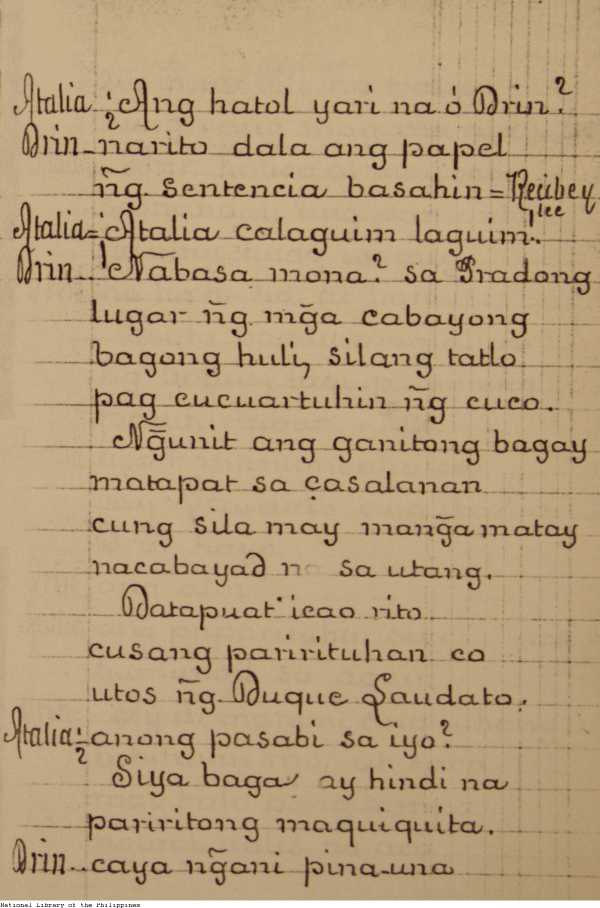 Atalia ¿Ang hatol yari na ó Drin?
Drin - narito dala ang papel
ñg sentencia basahin = Recibey
lee
Atalia = ¡Atalia calaguim laguim!.
Drin - ¿Nabasa mona? sa Pradong
lugar ñg. mg̃a cabayong
bagong huli, silang tatlo
pag cucuartuhin ñg cuco.
Ng̃unit ang ganitong bagay
matapat sa casalanan
cung sila may mang̃amatay
nacabayad na sa utang.
Datapuat icao rito
cusang paririтuhan co
utos ñg. Duque Laudato.
Atalia - ¿anong pasabi sa iyo?
Siya baga ay hindi na
pariritong maquiquita.
Drin - caya ng̃ani pina-una
National Library of the Philippines